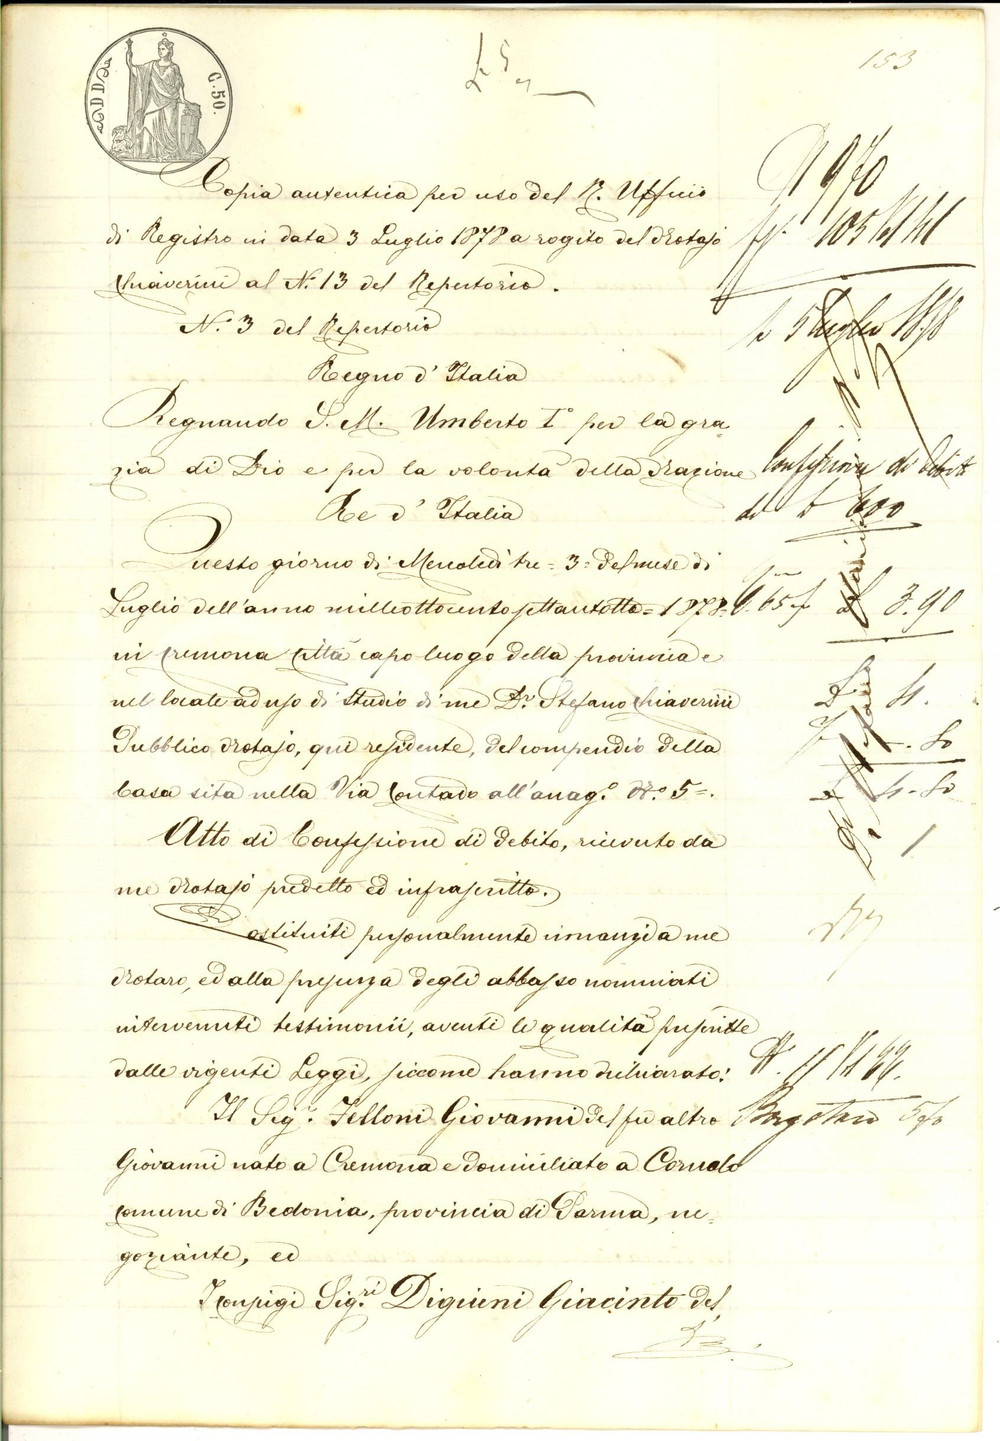 153
C. 50.
Copia autentica per uso del R. Ufficio
di Registro in data 3 Luglio 1878 a rogito del Notajo
Chiaverini al N.° 13 del Repertorio.
N.° 3 del Repertorio
Regno d'Italia
Regnando S. M. Umberto I° per la gra
zia di Dio e per la volontà della Nazione
Re d'Italia
Questo giorno di Mercoledì tre = 3 = del mese di
Luglio dell'anno milleottocento settantotto = 1878 =
in Cremona Città capo luogo della provincia e
nel locale ad uso di studio di me Dr. Stefano Chiaverini
Pubblico Notajo, qui residente, del compendio della
Casa sita nella Via Contado all'anag.° N.° 5 =.
Atto di Confessione di debito, ricevuto da
me Notajo predetto ed infrascritto.
Costituiti personalmente innanzi a me
Notaro, ed alla presenza degli abbasso nominati
intervenuti testimonii, aventi le qualità prescritte
dalle vigenti Leggi, siccome hanno dichiarato:
Il Sig.r Felloni Giovanni del fu altro
Giovanni nato a Cremona e domiciliato a Cornolo
comune di Bedonia, provincia di Parma, ne=
goziante, ed
I conjugi Sig.ri Digiuni Giacinto del
N 970
Confessione di debito
di L 600
3.90
4.
-.80
4.80
1